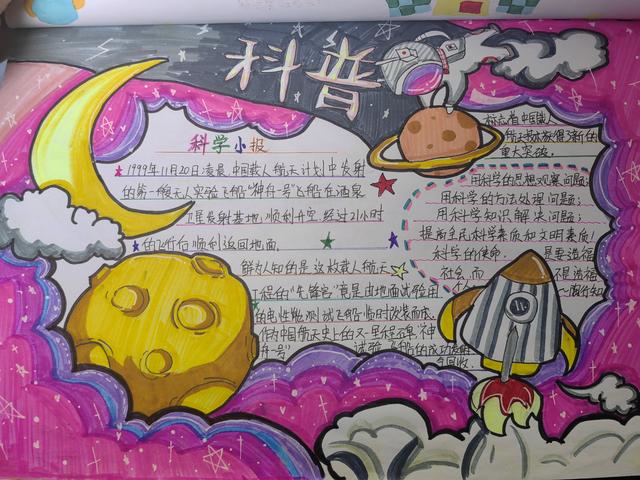 科普
科学小报
1999年11月20日凌晨,中国载人航天计划中发射
的第一艘无人实验飞船"神舟一号"飞船在酒泉
卫星发射基地,顺利升空,经过21小时
的飞行后顺利返回地面
鲜为人知的是这枚载人航天
工程的"先锋官"竟是由地面试验用
的电性能测试飞船临时改装而成.
作为中国航天史上的又一里程碑,"神
舟一号"试验飞船的成功发射
与回收,
标志着中国载人
航天技术获得了新的
重大突破.
用科学的思想观察问题;
用科学的方法处理问题;
用科学知识解决问题;
提高全民科学素质和文明素质!
科学的使命 是要造福
社会,而 不是造福
个人